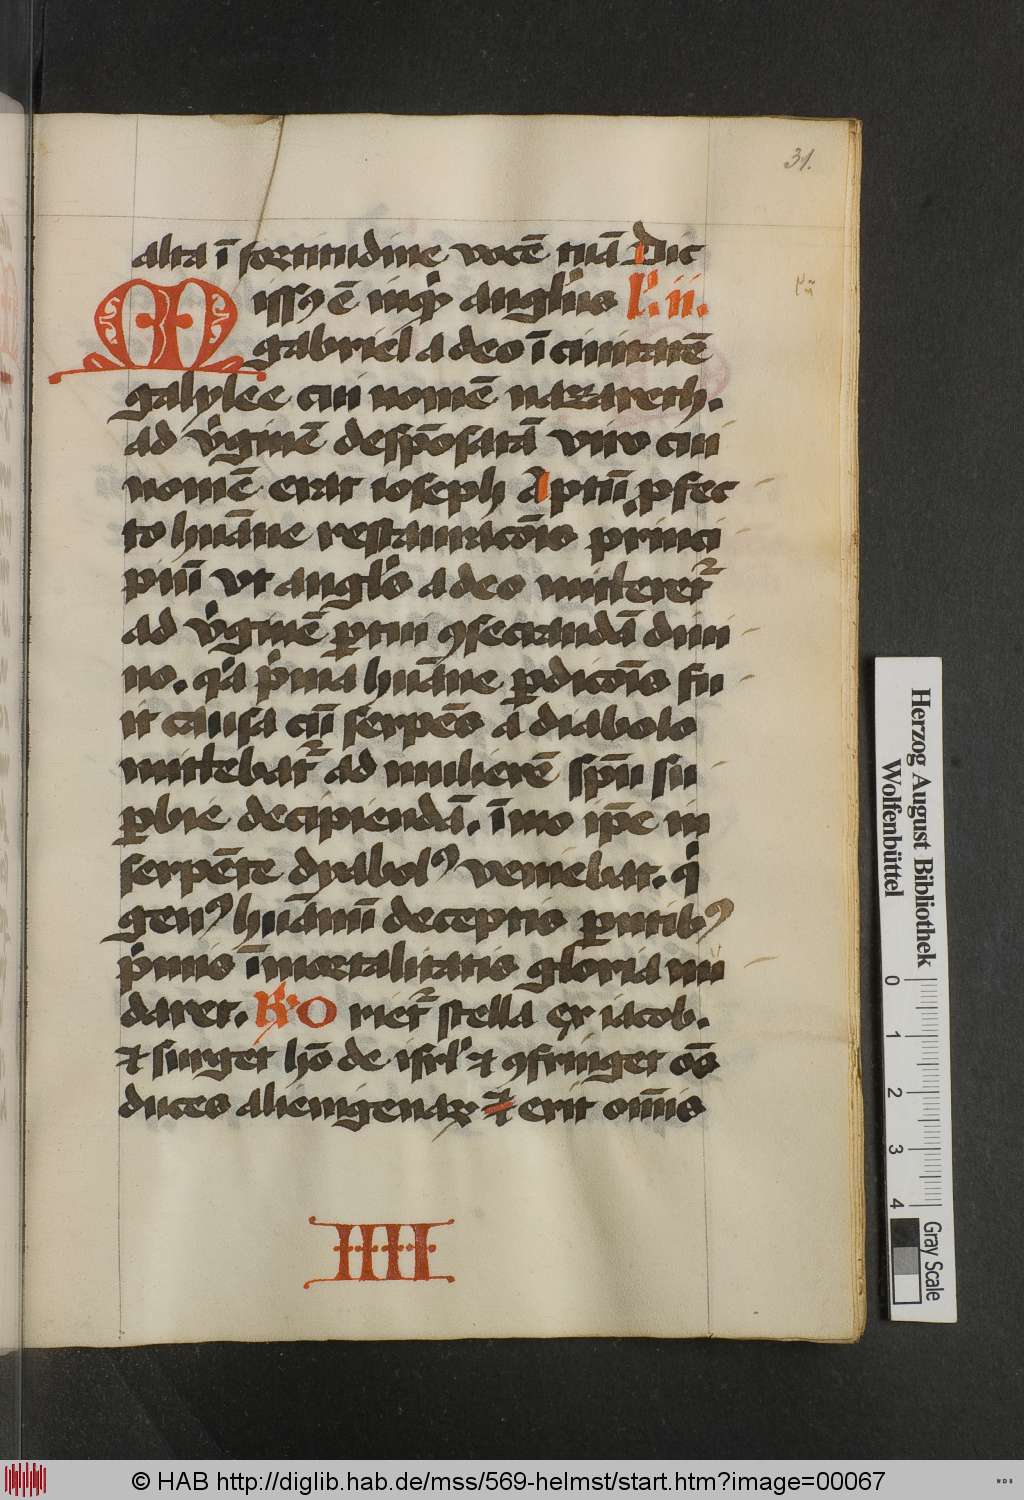 31.
alta ī fortitudine vocē tuā Dic
Missꝰ ē inqͥt anglꝰs L' ii.
gabriel a deo ī ciuitatē
galylee cui nomē nazareth.
ad vͥginē despōsatā viro cui
nomē erat ioseph Aptū ꝓfec
to huāne restauratōis princi
piū vt anglꝰs a deo mitteret᷑
ad vͥginē ꝑtui ꝯsecrandā diui
no. qͥa pͥma huāne ꝑdicōis fu
it causa cū serpēs a diabolo
mittebat᷑ ad mulierē spū su
ꝑbie decipiendā. īmo ipē in
serpēte dyabolꝰ veniebat. qͥ
genꝰ huānū deceptis ꝑentibꝰ
pͥmis īmortalitatis gloria nu
daret. R Oriet᷑ stella ex iacob.
⁊ surget hō de isrl' ⁊ ꝯfringet oēs
duces alienigenaꝝ ⁊ erit omīs
IIII
Herzog August Bibliothek
Wolfenbüttel
0 1 2 3 4
Gray Scale
© HAB http://diglib.hab.de/mss/569-helmst/start.htm?image=00067